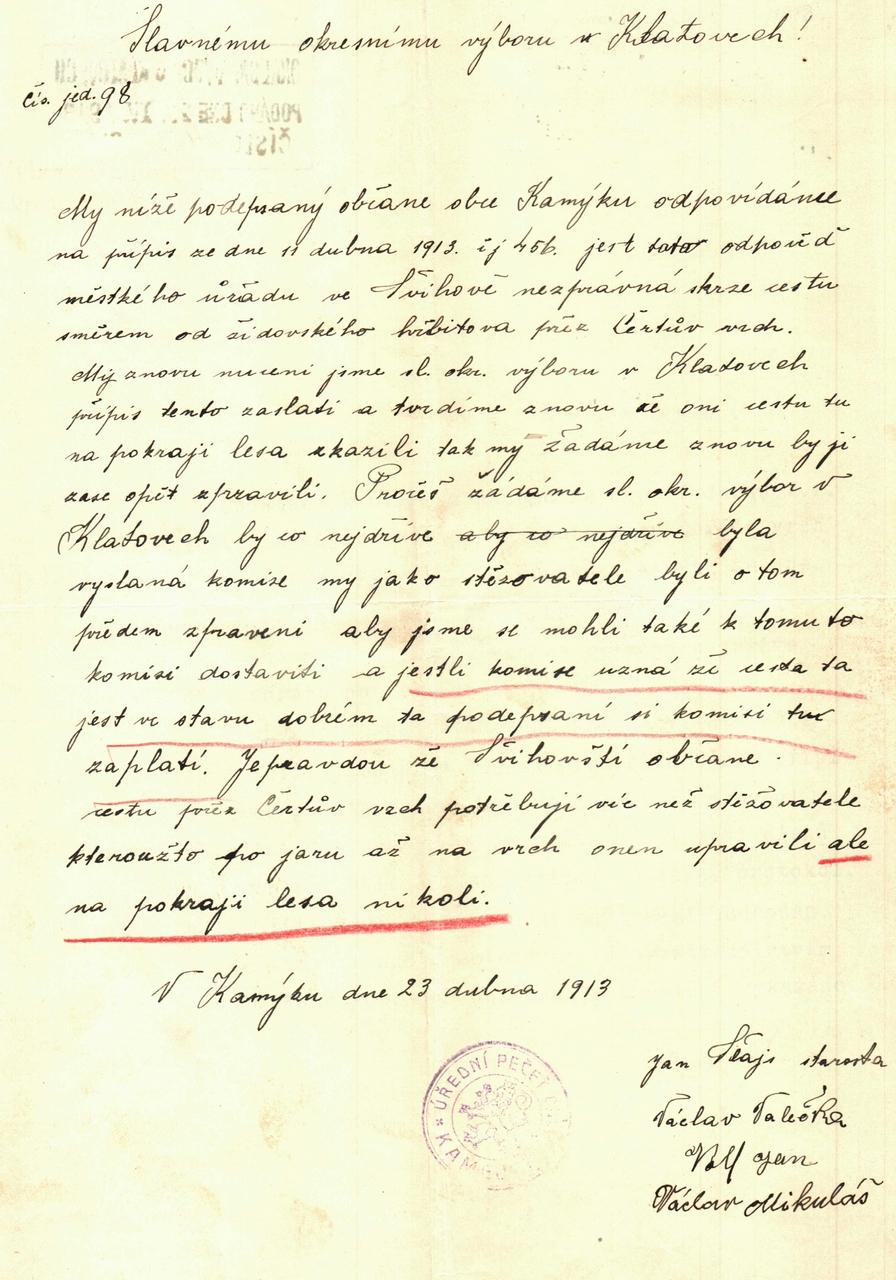 Slavnému okresnímu výboru v Klatovech!
čís. jed. 98
My níže podepsaný občane obce Kamýku odpovídáme
na přípis ze dne 11 dubna 1913. čj 456. jest tato odpověď
městkého úřadu ve Švihově nezprávná skrze cestu
směrem od židovského hřbitova přez Čertův vrch.
My znovu nuceni jsme sl. okr. výboru v Klatovech
přípis tento zaslati a tvrdíme znovu že oni cestu tu
na pokraji lesa zkazili tak my žádáme znovu by ji
zase opět zpravili. Pročeš žádáme sl. okr. výbor v
Klatovech by co nejdříve aby co nejdříve byla
vyslaná komise my jako stěžovatele byli o tom
předem zpraveni aby jsme se mohli také k tomuto
komisi dostaviti a jestli komise uzná že cesta ta
jest ve stavu dobrém ta podepsaní si komisi
zaplatí. Jepravdou že Švihovští občane
cestu přez Čertův vrch potřebují víc než stěžovatele
kteroužto po jaru až na vrch onen upravili ale
na pokraji lesa nikoli.
V Kamýku dne 23 dubna 1913
ÚŘEDNÍ PEČEŤ
Jan starosta
Václav
Jan
Václav Mikuláš